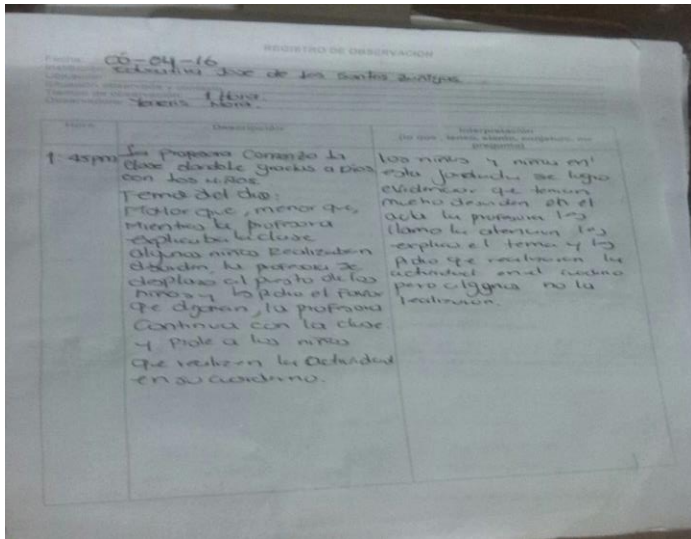 REGISTRO DE OBSERVACION
Fecha: 05-04-16
Educativa Jose de los Santos
Tiempo de observación: 1 Hora.
Observador: Mora.
Hora
Descripción
1:45pm La profesora Comenzo la
clase dandole gracias a Dios
con los niños
Tema del dia:
Mallor que, menor que,
Mientras la profesora
explicaba la clase
algunos niños Realizaban
desorden, la profesora se
desplazo al puesto de los
niños y les pidio el favor
que, la profesora
Continua con la clase
y Pide a los niños
que realizen la Actividad
en su cuaderno.
Interpretación
(lo que, siento, me
pregunto)
los niños y niñas en
esta se logro
evidenciar que tenian
mucho desorden en el
aula la profesora les
llamo la atencion les
explico el tema y les
pidio que realizaran la
actividad en el cuaderno
pero algunos no la
realizaron.